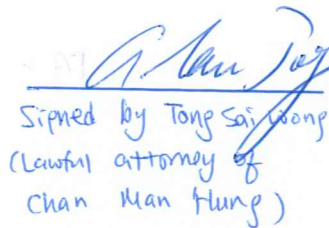 Signed by Tong Sai Wong
(Lawful attorney of
Chan Man Hung)